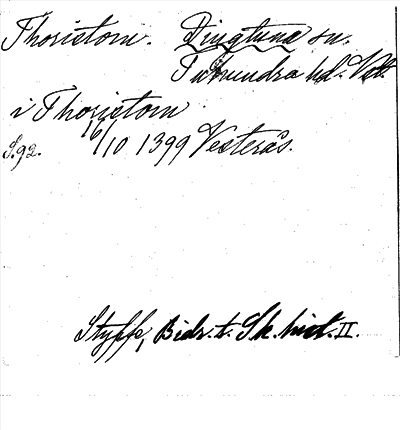 Thoristom. Dingtuna sn.
Tuhundra hd. Vstl.
i Thoristom
16/10 1399 Vesterås.
S. 92.
Styffe, Bidr. t. Sk. hist. II.